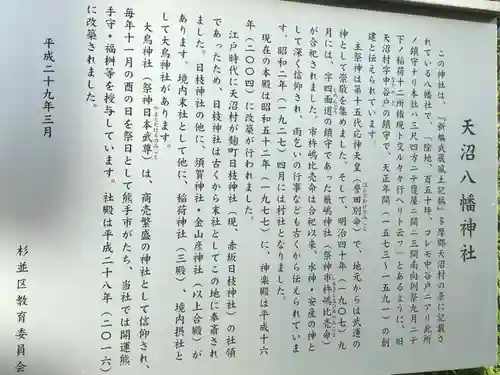 天沼八幡神社
この神社は、『新編武蔵風土記稿』多摩郡天沼村の条に記載さ
れている八幡社で、「除地、百五十坪、コレモ中谷戸ニアリ此所
ノ鎮守ナリ本社ハ三尺四方ニテ覆屋ニ間ニ三間南向例祭九月ニテ
下ノ稲荷十二所権現ト交ル々々行ヘリト云フ」とあるように、旧
天沼村字中谷戸の鎮守で、天正年間(一五七三〜一五九一)の創
建と伝えられています。
主祭神は第十五代応神天皇(誉田別命)で、地元からは武運の
神として崇敬を集めました。そして、明治四十年(一九〇七)九
月には、字四面道の鎮守であった厳嶋神社(祭神市杵嶋比売命)
が合祀されました。市杵嶋比売命は合祀以来、水神・安産の神と
して深く信仰され、雨乞いの行事なども古くから伝えられていま
す。昭和二年(一九二七)四月には村社となりました。
現在の本殿は昭和五十二年(一九七七)に、神楽殿は平成十六
年(二〇〇四)に改築が行われました。
江戸時代に天沼村が麹町日枝神社(現、赤坂日枝神社)の社領
であったため、日枝神社は古くから末社としてこの地に奉斎され
ました。日枝神社の他に、須賀神社・金山彦神社(以上合殿)が
あります。境内末社として他に、稲荷神社(三殿)、境内摂社と
して大鳥神社があります。
大鳥神社(祭神日本武尊)は、商売繁盛の神社として信仰され、
毎年十一月の酉の日を祭日として熊手市がたち、当社では開運熊
手守・福桝等を授与しています。社殿は平成二十八年(二〇一六)
に改築されました。
平成二十九年三月
杉並区教育委員会